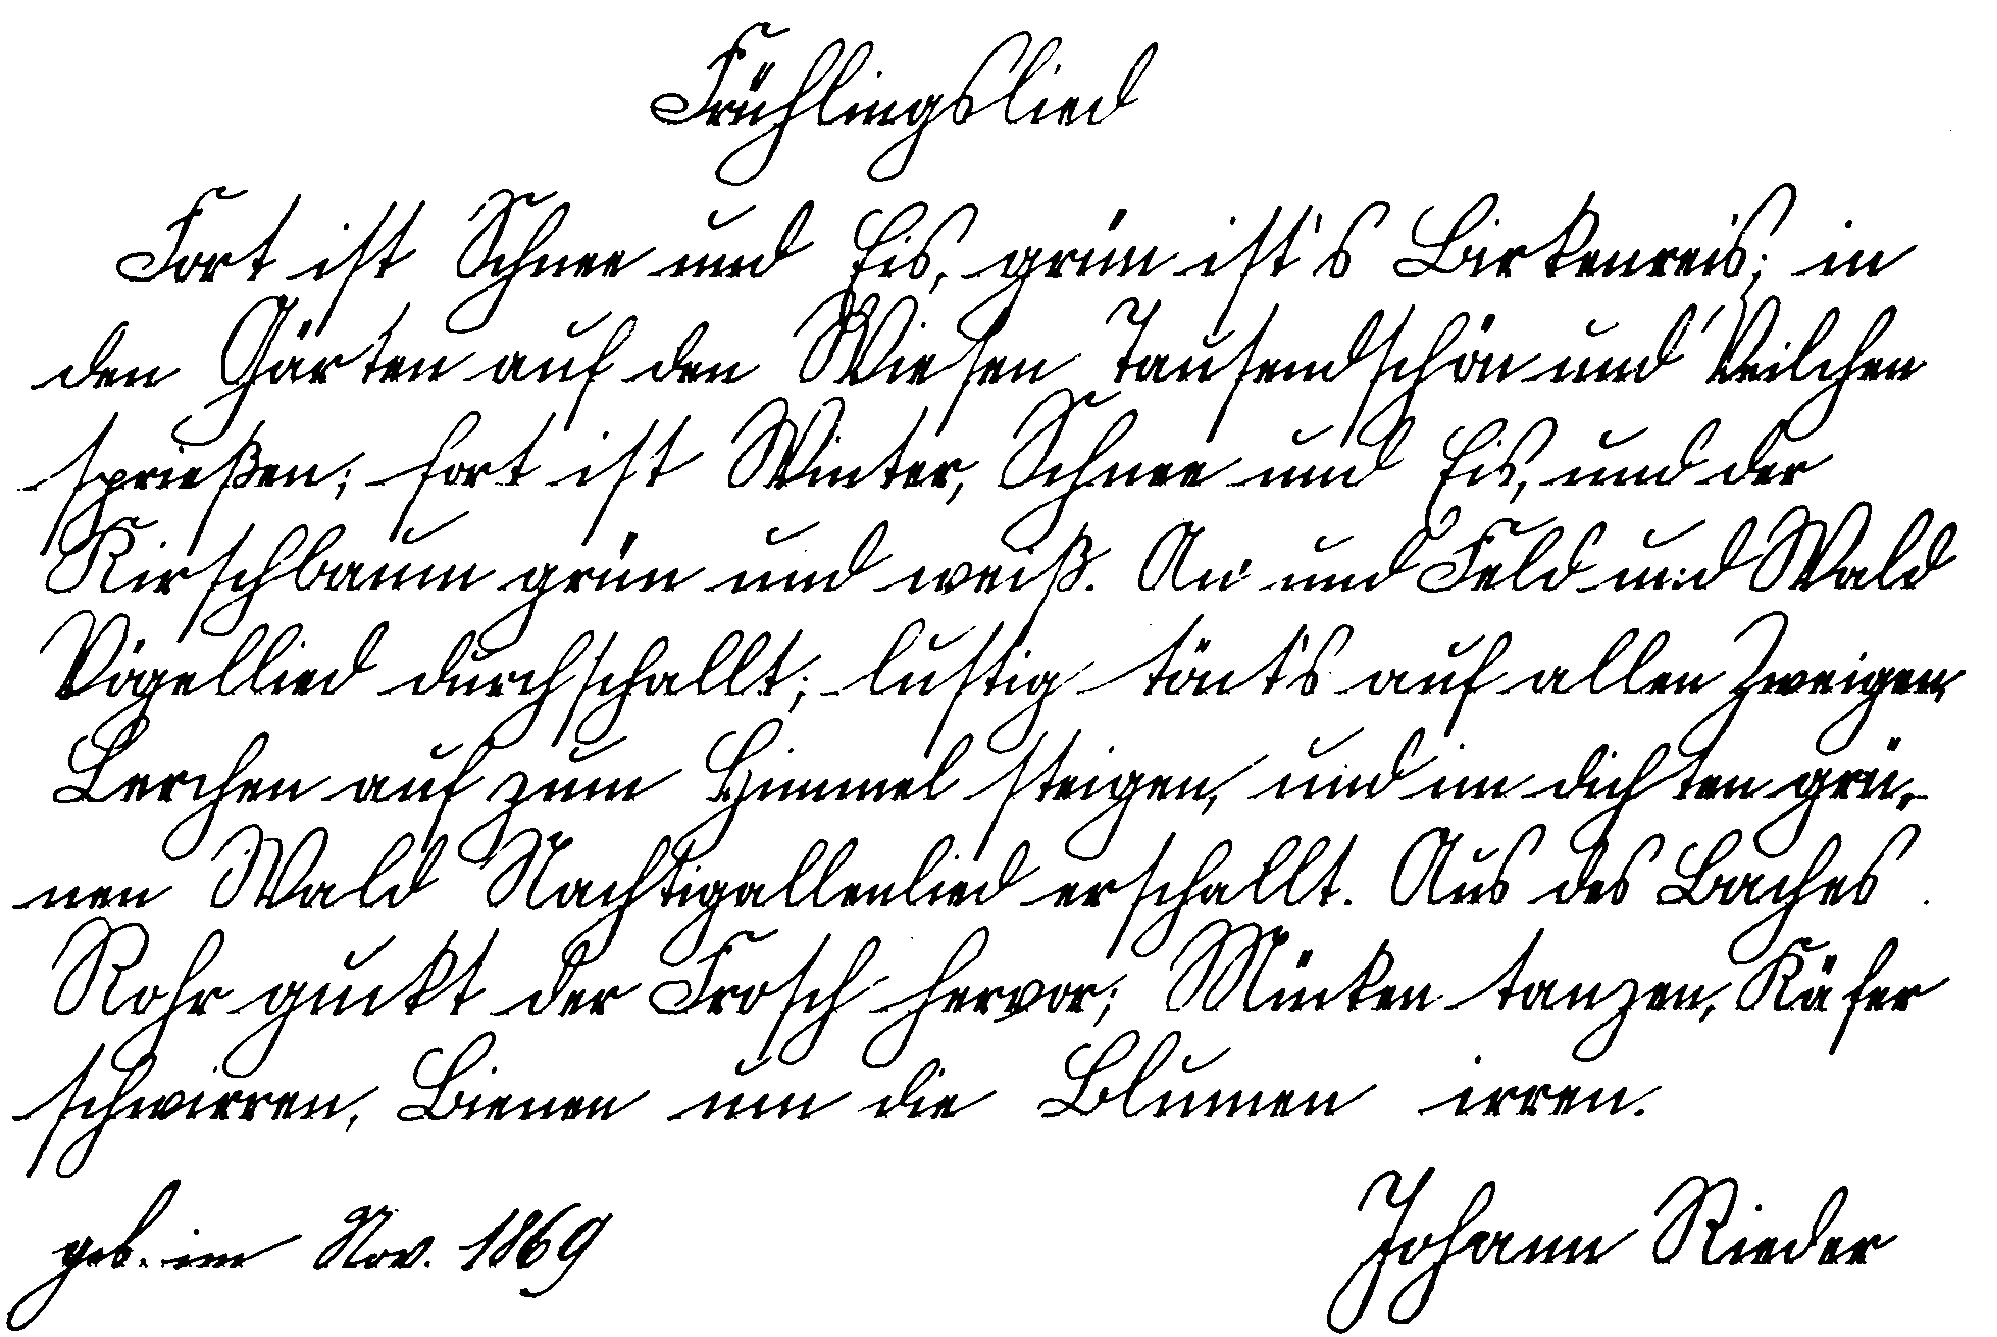 Frühlingslied
Fort ist Schnee und Eis, grün ist's Birkenreis; in
den Gärten auf den Wiesen Tausendschön und Veilchen
sprießen; fort ist Winter, Schnee und Eis, und der
Kirschbaum grün und weiß. An und Feld und Wald
Vögellied durchschallt; lustig tönt's auf allen Zweigen,
Lerchen auf zum Himmel steigen, und im dichten grü-
nen Wald Nachtigallenlied erschallt. Aus des Baches
Rohr guckt der Frosch hervor; Mücken tanzen, Käfer
schwirren, Bienen um die Blumen irren.
geb. im Nov. 1869 Johann Rieder